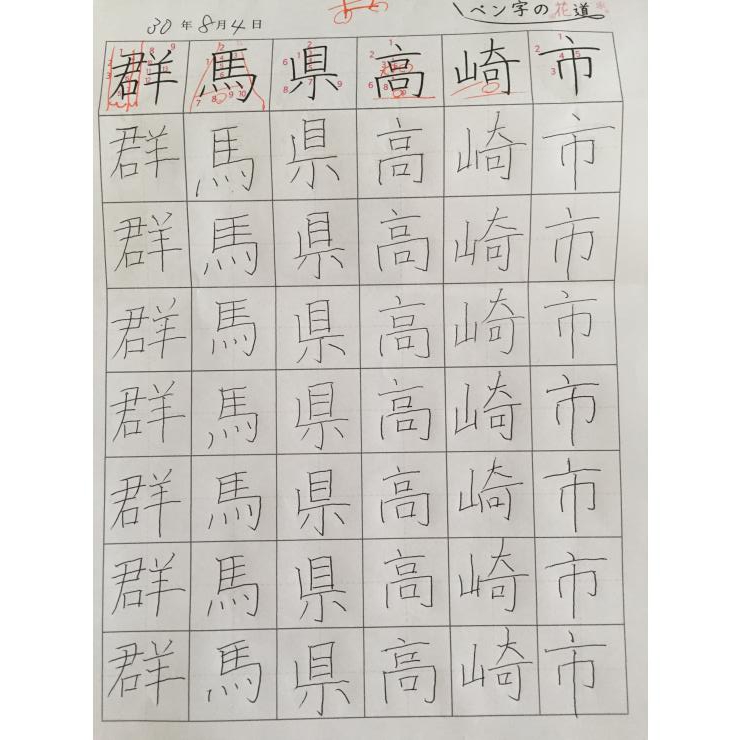 30年8月4日
ペン字の花道
群馬県高崎市
群馬県高崎市
群馬県高崎市
群馬県高崎市
群馬県高崎市
群馬県高崎市
群馬県高崎市
群馬県高崎市